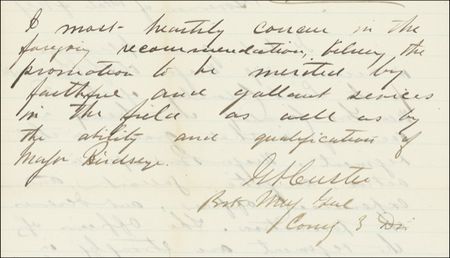 I most heartily concur in the
foregoing recommendation, beleiving the
promotion to be merited by
faithful and gallant services
in the field as well as by
the ability and qualification of
Major Birdseye.
GACuster
Bvt Maj Genl
Comg 3 Div